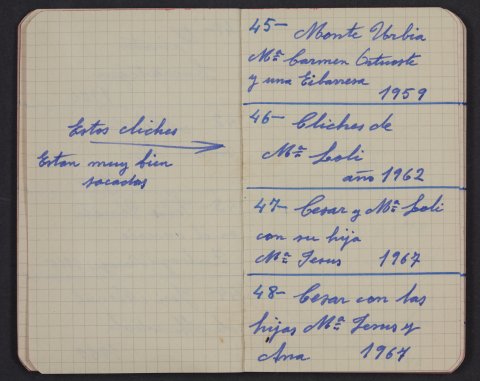 Estos cliches
Estan muy bien
sacados
45- Monte Urbia
Mª Carmen Ortuoste
y una Eibarresa
1959
46- Cliches de
Mª Loli
año 1962
47- Cesar y Mª Loli
con su hija
Mª Jesus 1967
48- Cesar con las
hijas Mª Jesus y
Ana 1967